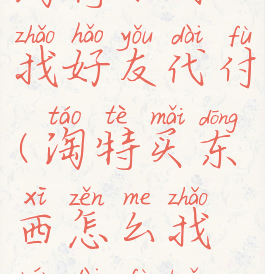 zhǎo hǎo yǒu dài fù
找好友代付
táo tè mǎi dōng
(淘特买东
xī zěn me zhǎo
西怎么找